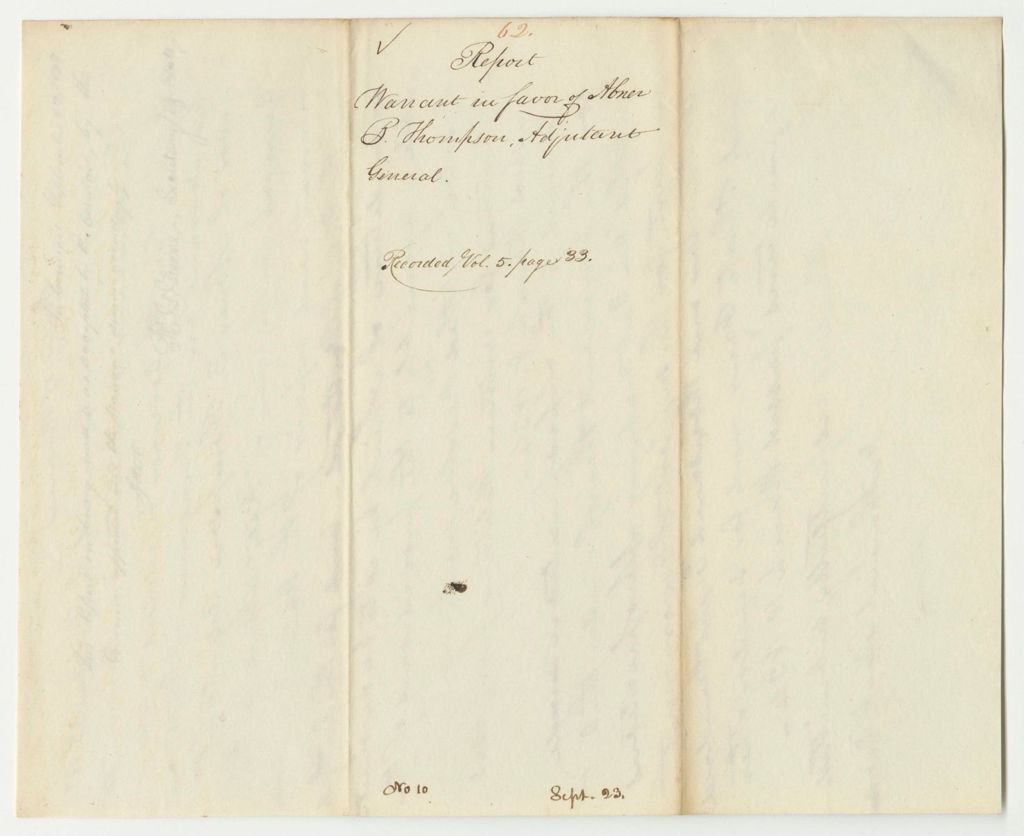 ✓ 62.
Report
Warrant in favor of Abner
B. Thompson, Adjutant
General.
Recorded, Vol. 5. page 33.
No 10 Sept. 23.